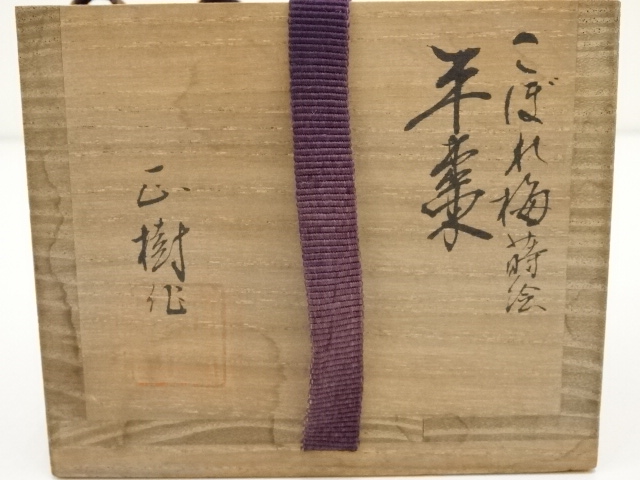 こぼれ梅蒔絵
平棗
正樹作